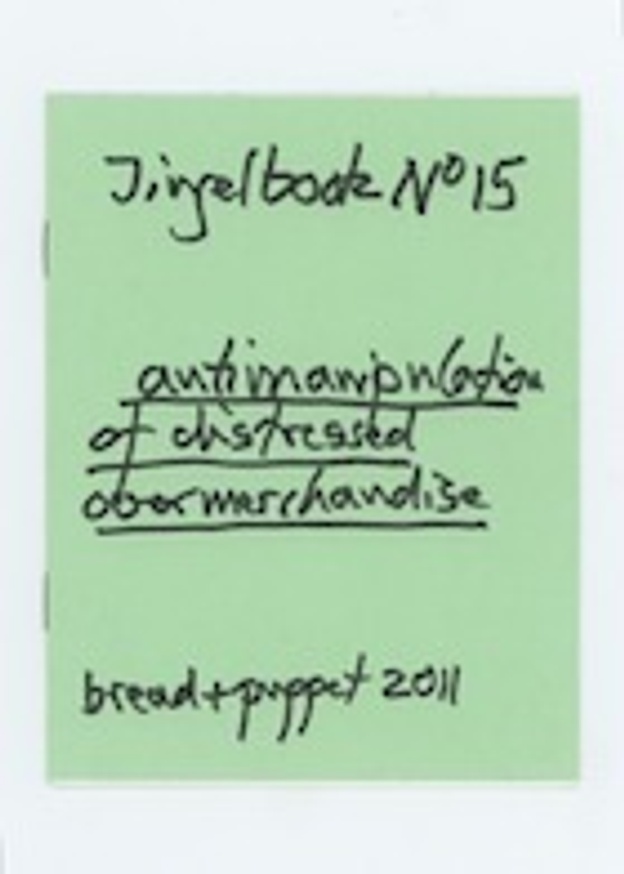 Jingelbook Nº 15
antimanipulation
of distressed
overmerchandise
bread + puppet 2011